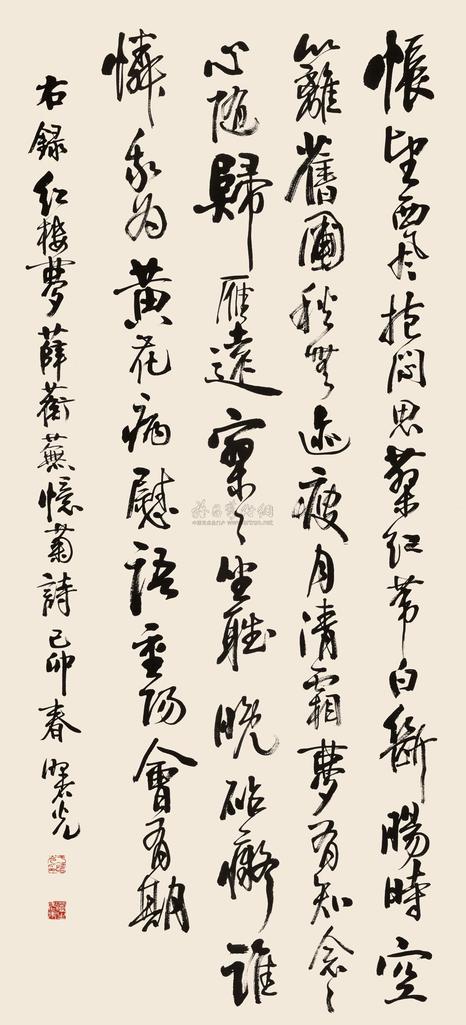 悵望西風抱闷思蓼红葦白斷腸時空
籬舊圃秋無迹瘦月清霜夢有知念〻
心随歸雁遠寥〻坐聽晚砧癡誰
憐我为黄花病慰語重陽會有期
右録红楼夢薛蘅蕪憶菊詩己卯春